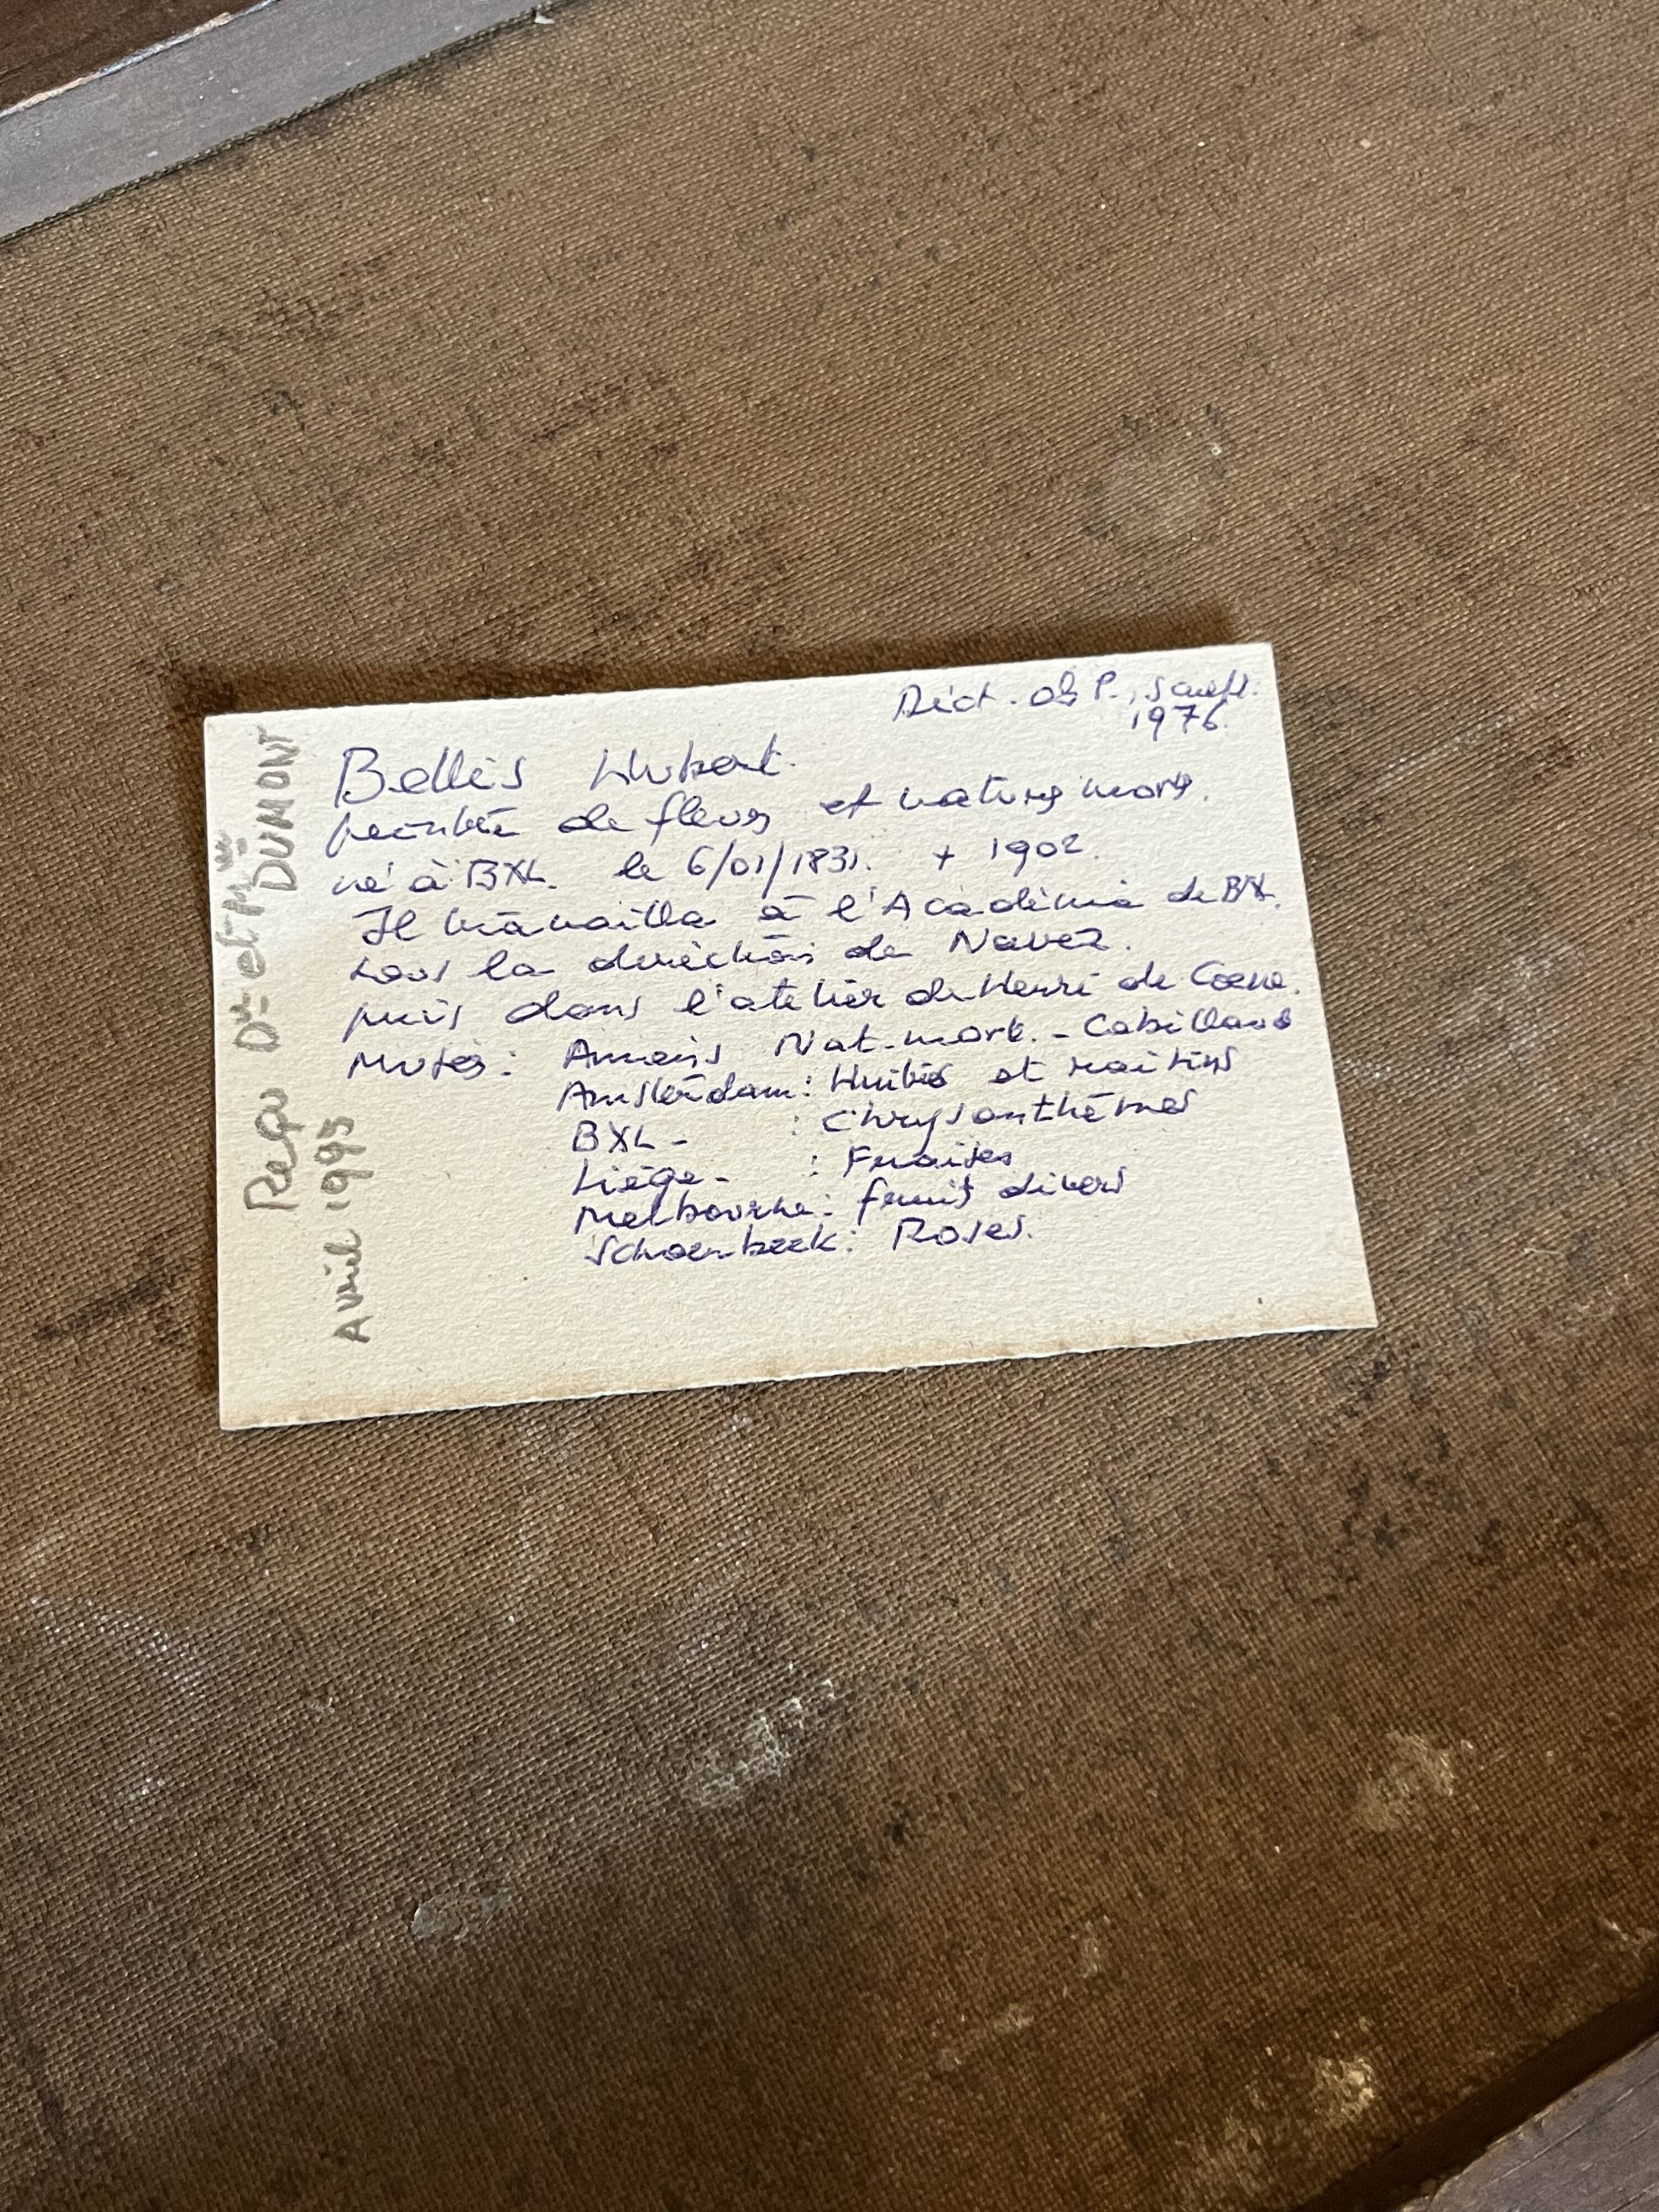 Dict. des P., Sculpt.
1976.
Bellis Hubert.
peintre de fleurs et natures mort.
né à BXL. le 6/01/1831. + 1902.
Il travailla à l'Académie de BXL.
sous la direction de Navez.
puis dans l'atelier de Henri de Coene.
Musés: Amiens Nat-mort. - Cabillaud
Amsterdam: Huitres et raisins
BXL - : Chrysanthèmes
Liège - : Fraises
Melbourne: fruits divers
Schaerbeek: Roses.
Reçu Dr et Mme DUMONT
Avril 1995